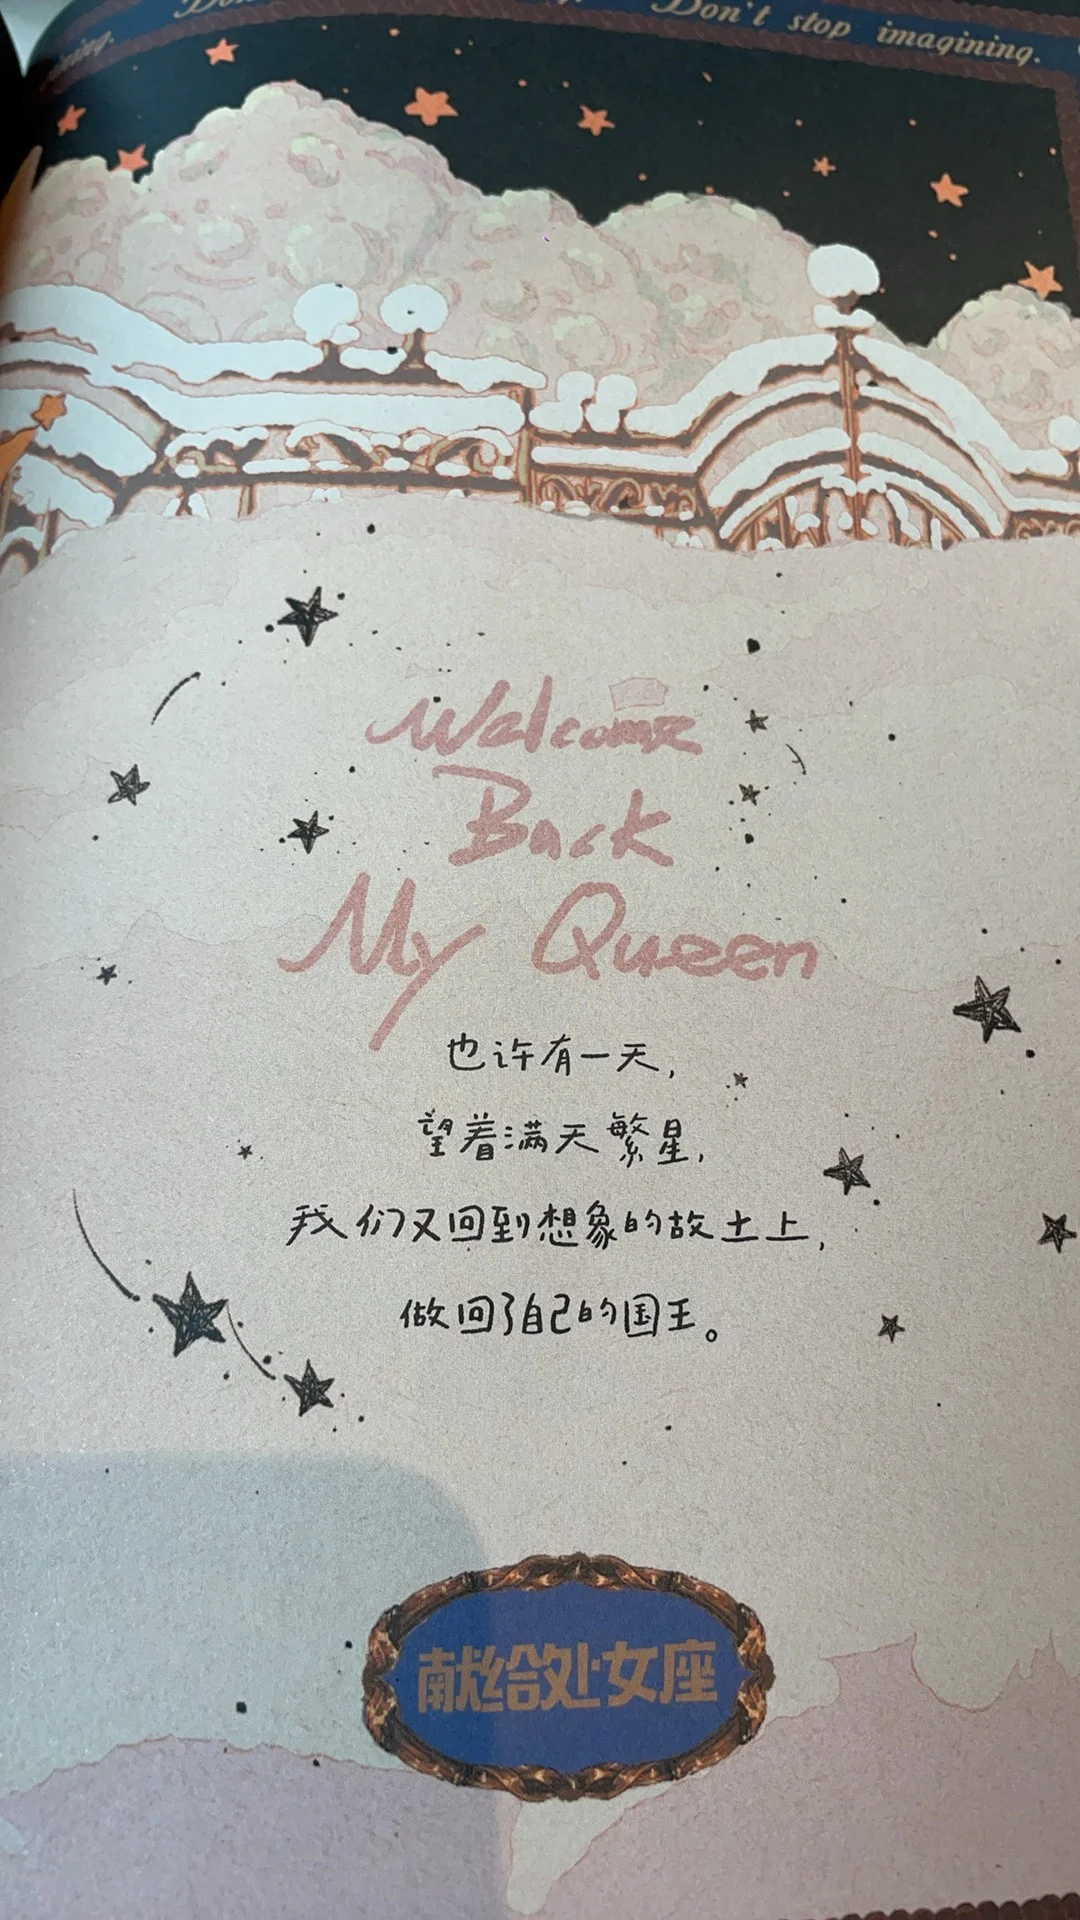 Don't stop imagining.
Welcome
Back
My Queen
也许有一天，
望着满天繁星，
我们又回到想象的故土上，
做回了自己的国王。
献给处女座